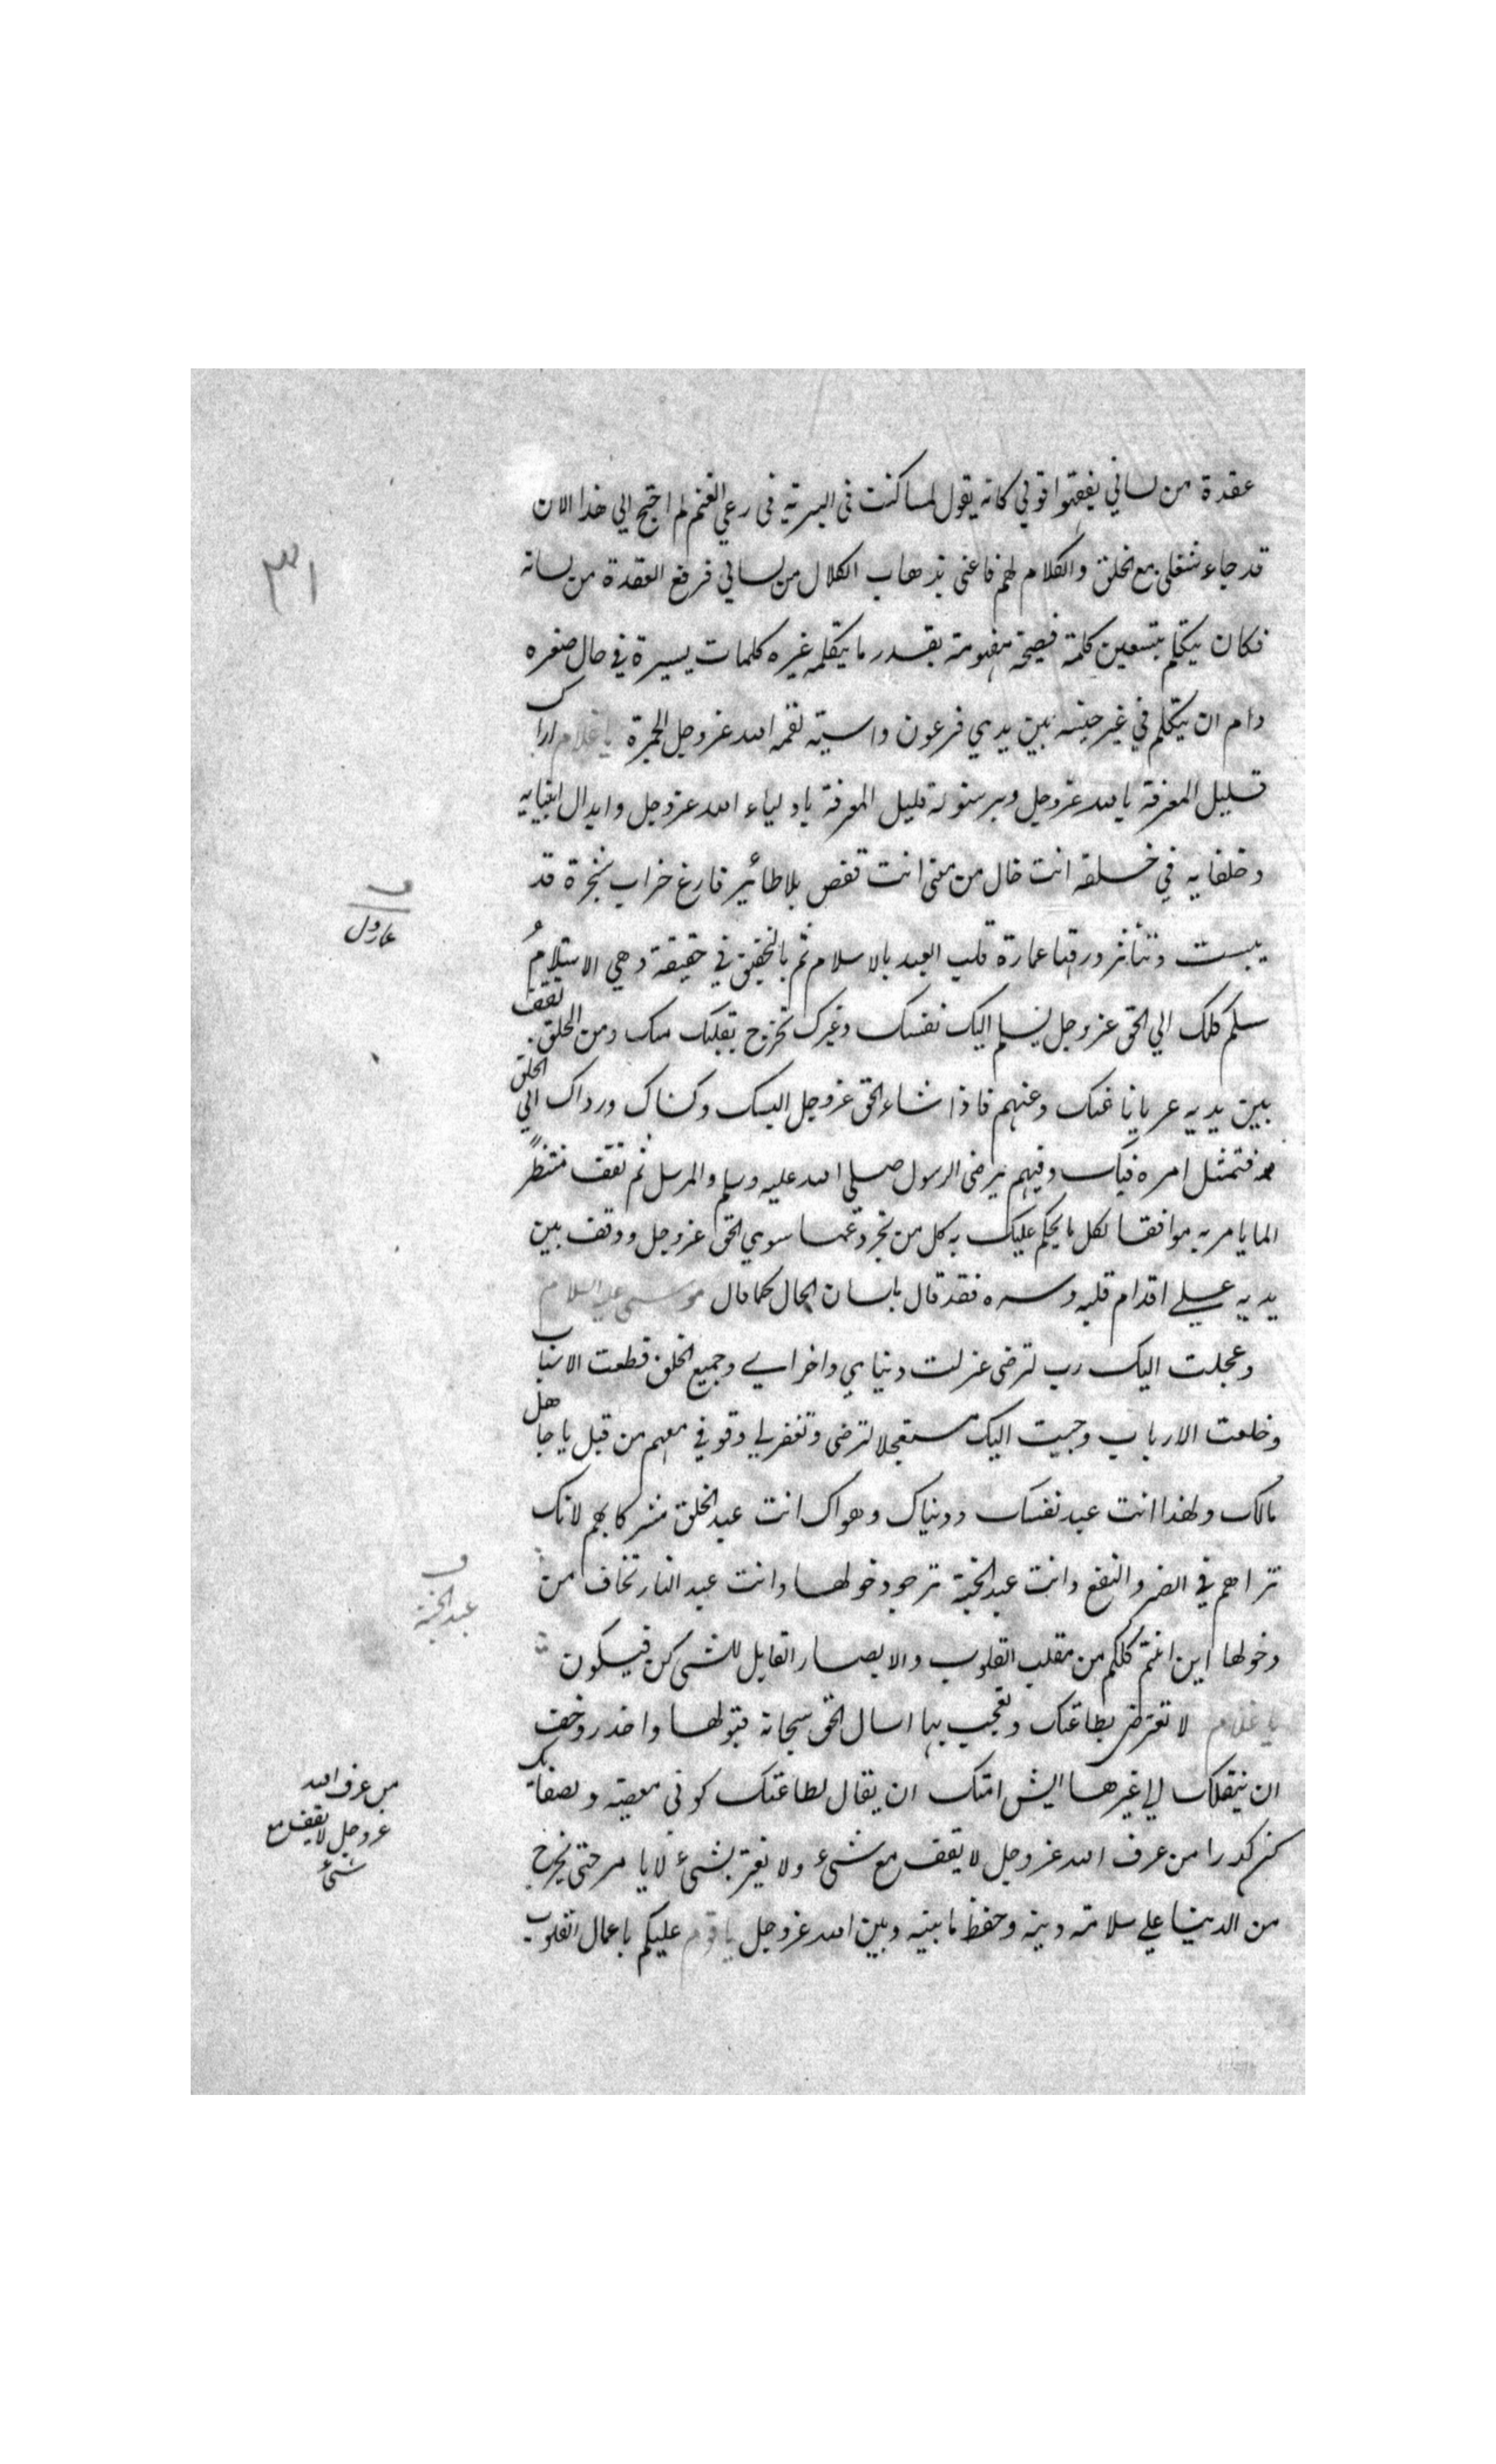 عقدة من لساني يفقهوا قولي كانه يقول لما كنت في البرية في رعي الغنم لم احتج الي هذا الان
قد جاء شغلي مع الخلق والكلام لهم فاعني بذهاب الكلال من لساني فرفع العقدة من لسانه
فكان يتكلم بتسعين كلمة فصيحة مفهومة بقدر ما يتكلمه غيره كلمات يسيرة في حال صغره
رام ان يتكلم في غير حينه بين يدي فرعون واسيته لقمه الله عز وجل الجمرة يا غلام اراك
قليل المعرفة بالله عز وجل وبرسوله قليل المعرفة باولياء الله عز وجل وابدال انبيايه
وخلفايه في خلقه انت خال من معني انت قفص بلا طائر فارغ خراب شجرة قد
يبست وتناثر ورقها عمارة قلب العبد بالاسلام ثم بالتحقيق في حقيقة وهي الاستسلام
سلم كلك الي الحق عز وجل يسلم اليك نفسك وغيرك تخرج بقلبك منك ومن الخلق تقف
بين يديه عريانا عنك وعنهم فاذا شاء الحق عز وجل البسك وكساك وردك الي الخلق
فتمتثل امره فيك وفيهم برضي الرسول صلي الله عليه وسلم والمرسل ثم تقف منتظرا
لما يامر به موافقا لكل ما يحكم عليك به كل من تجرد عما سوي الحق عز وجل ووقف بين
يديه علي اقدام قلبه وسره فقد قال بلسان الحال كما قال موسي عليه السلام
وعجلت اليك رب لترضي عزلت دنياي واخراي وجميع الخلق قطعت الاسباب
وخلعت الارباب وجيت اليك مستعجلا لترضي وتغفر لي وقوفي معهم من قبل يا جاهل
مالك ولهذا انت عبد نفسك ودنياك وهواك انت عبد الخلق مشركا بهم لانك
تراهم في الضر والنفع وانت عبد الجنة ترجو دخولها وانت عبد النار تخاف من
دخولها اين انتم كلكم من مقلب القلوب والابصار القايل للشي كن فيكون
يا غلام لا تغتر بطاعتك وتعجب بها اسال الحق سبحانه قبولها واحذر وخف
ان ينقلك الي غيرها ايش امنك ان يقال لطاعتك كوني معصية ولصفائك
كن كدرا من عرف الله عز وجل لا يقف مع شيء ولا يغتر بشيء لا يامن حتي يخرج
من الدنيا علي سلامة دينه وحفظ ما بينه وبين الله عز وجل يا قوم عليكم باعمال القلوب
٣١
عبد الجنة
من عرف الله
عز وجل لا يقف مع
شيء